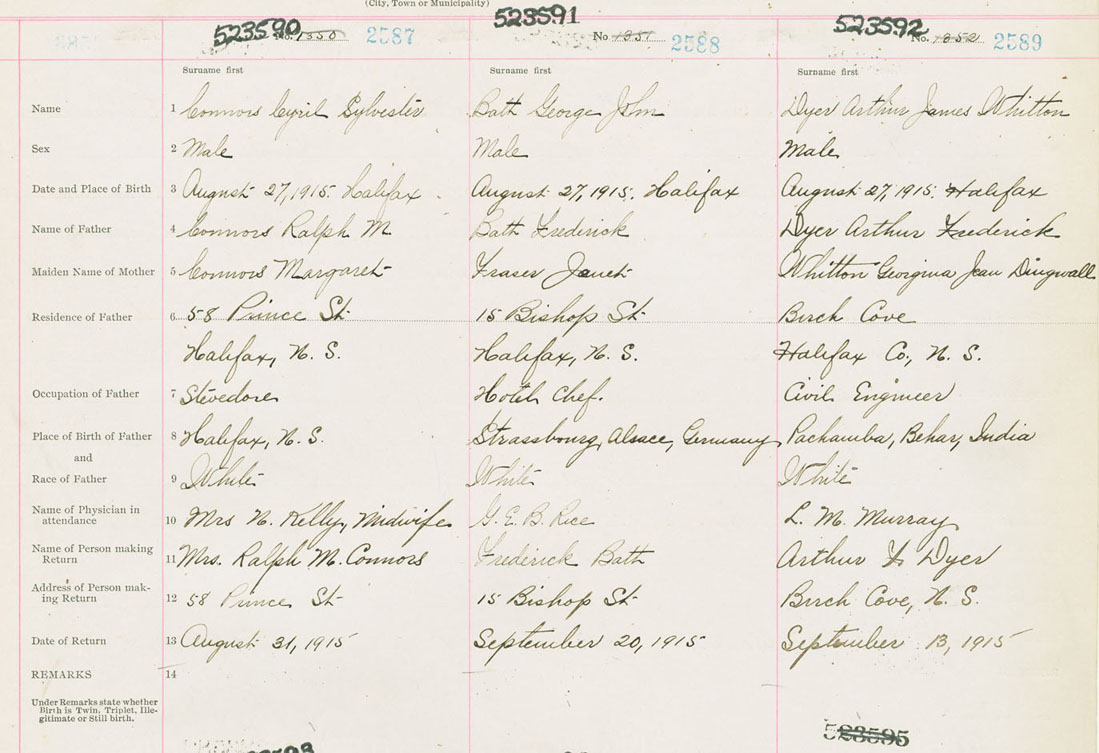 (City, Town or Municipality)
523590 No. 1350 2587 523591 No 1351 2588 523592 No. 1352 2589
Surname first Surname first Surname first
Name 1 Connors Cyril Sylvester Bath George John Dyer Arthur James Whitton
Sex 2 Male Male Male
Date and Place of Birth 3 August 27, 1915. Halifax August 27, 1915. Halifax August 27, 1915. Halifax
Name of Father 4 Connors Ralph M Bath Frederick Dyer Arthur Frederick
Maiden Name of Mother 5 Connors Margaret Fraser Janet Whitton Georgina Jean Dingwall
Residence of Father 6 58 Prince St. 15 Bishop St. Birch Cove
Halifax, N. S. Halifax, N. S. Halifax Co., N. S.
Occupation of Father 7 Stevedore Hotel Chef. Civil Engineer
Place of Birth of Father 8 Halifax, N. S. Strassbourg, Alsace, Germany Pachamba, Behar, India
and
Race of Father 9 White White White
Name of Physician in
attendance 10 Mrs N. Kelly, Midwife G. E. B. Rice L. M. Murray
Name of Person making
Return 11 Mrs. Ralph M. Connors Frederick Bath Arthur F. Dyer
Address of Person mak-
ing Return 12 58 Prince St 15 Bishop St. Birch Cove, N. S.
Date of Return 13 August 31, 1915 September 20, 1915 September 13, 1915
REMARKS 14
Under Remarks state whether
Birth is Twin, Triplet, Ille-
gitimate or Still birth.
523595